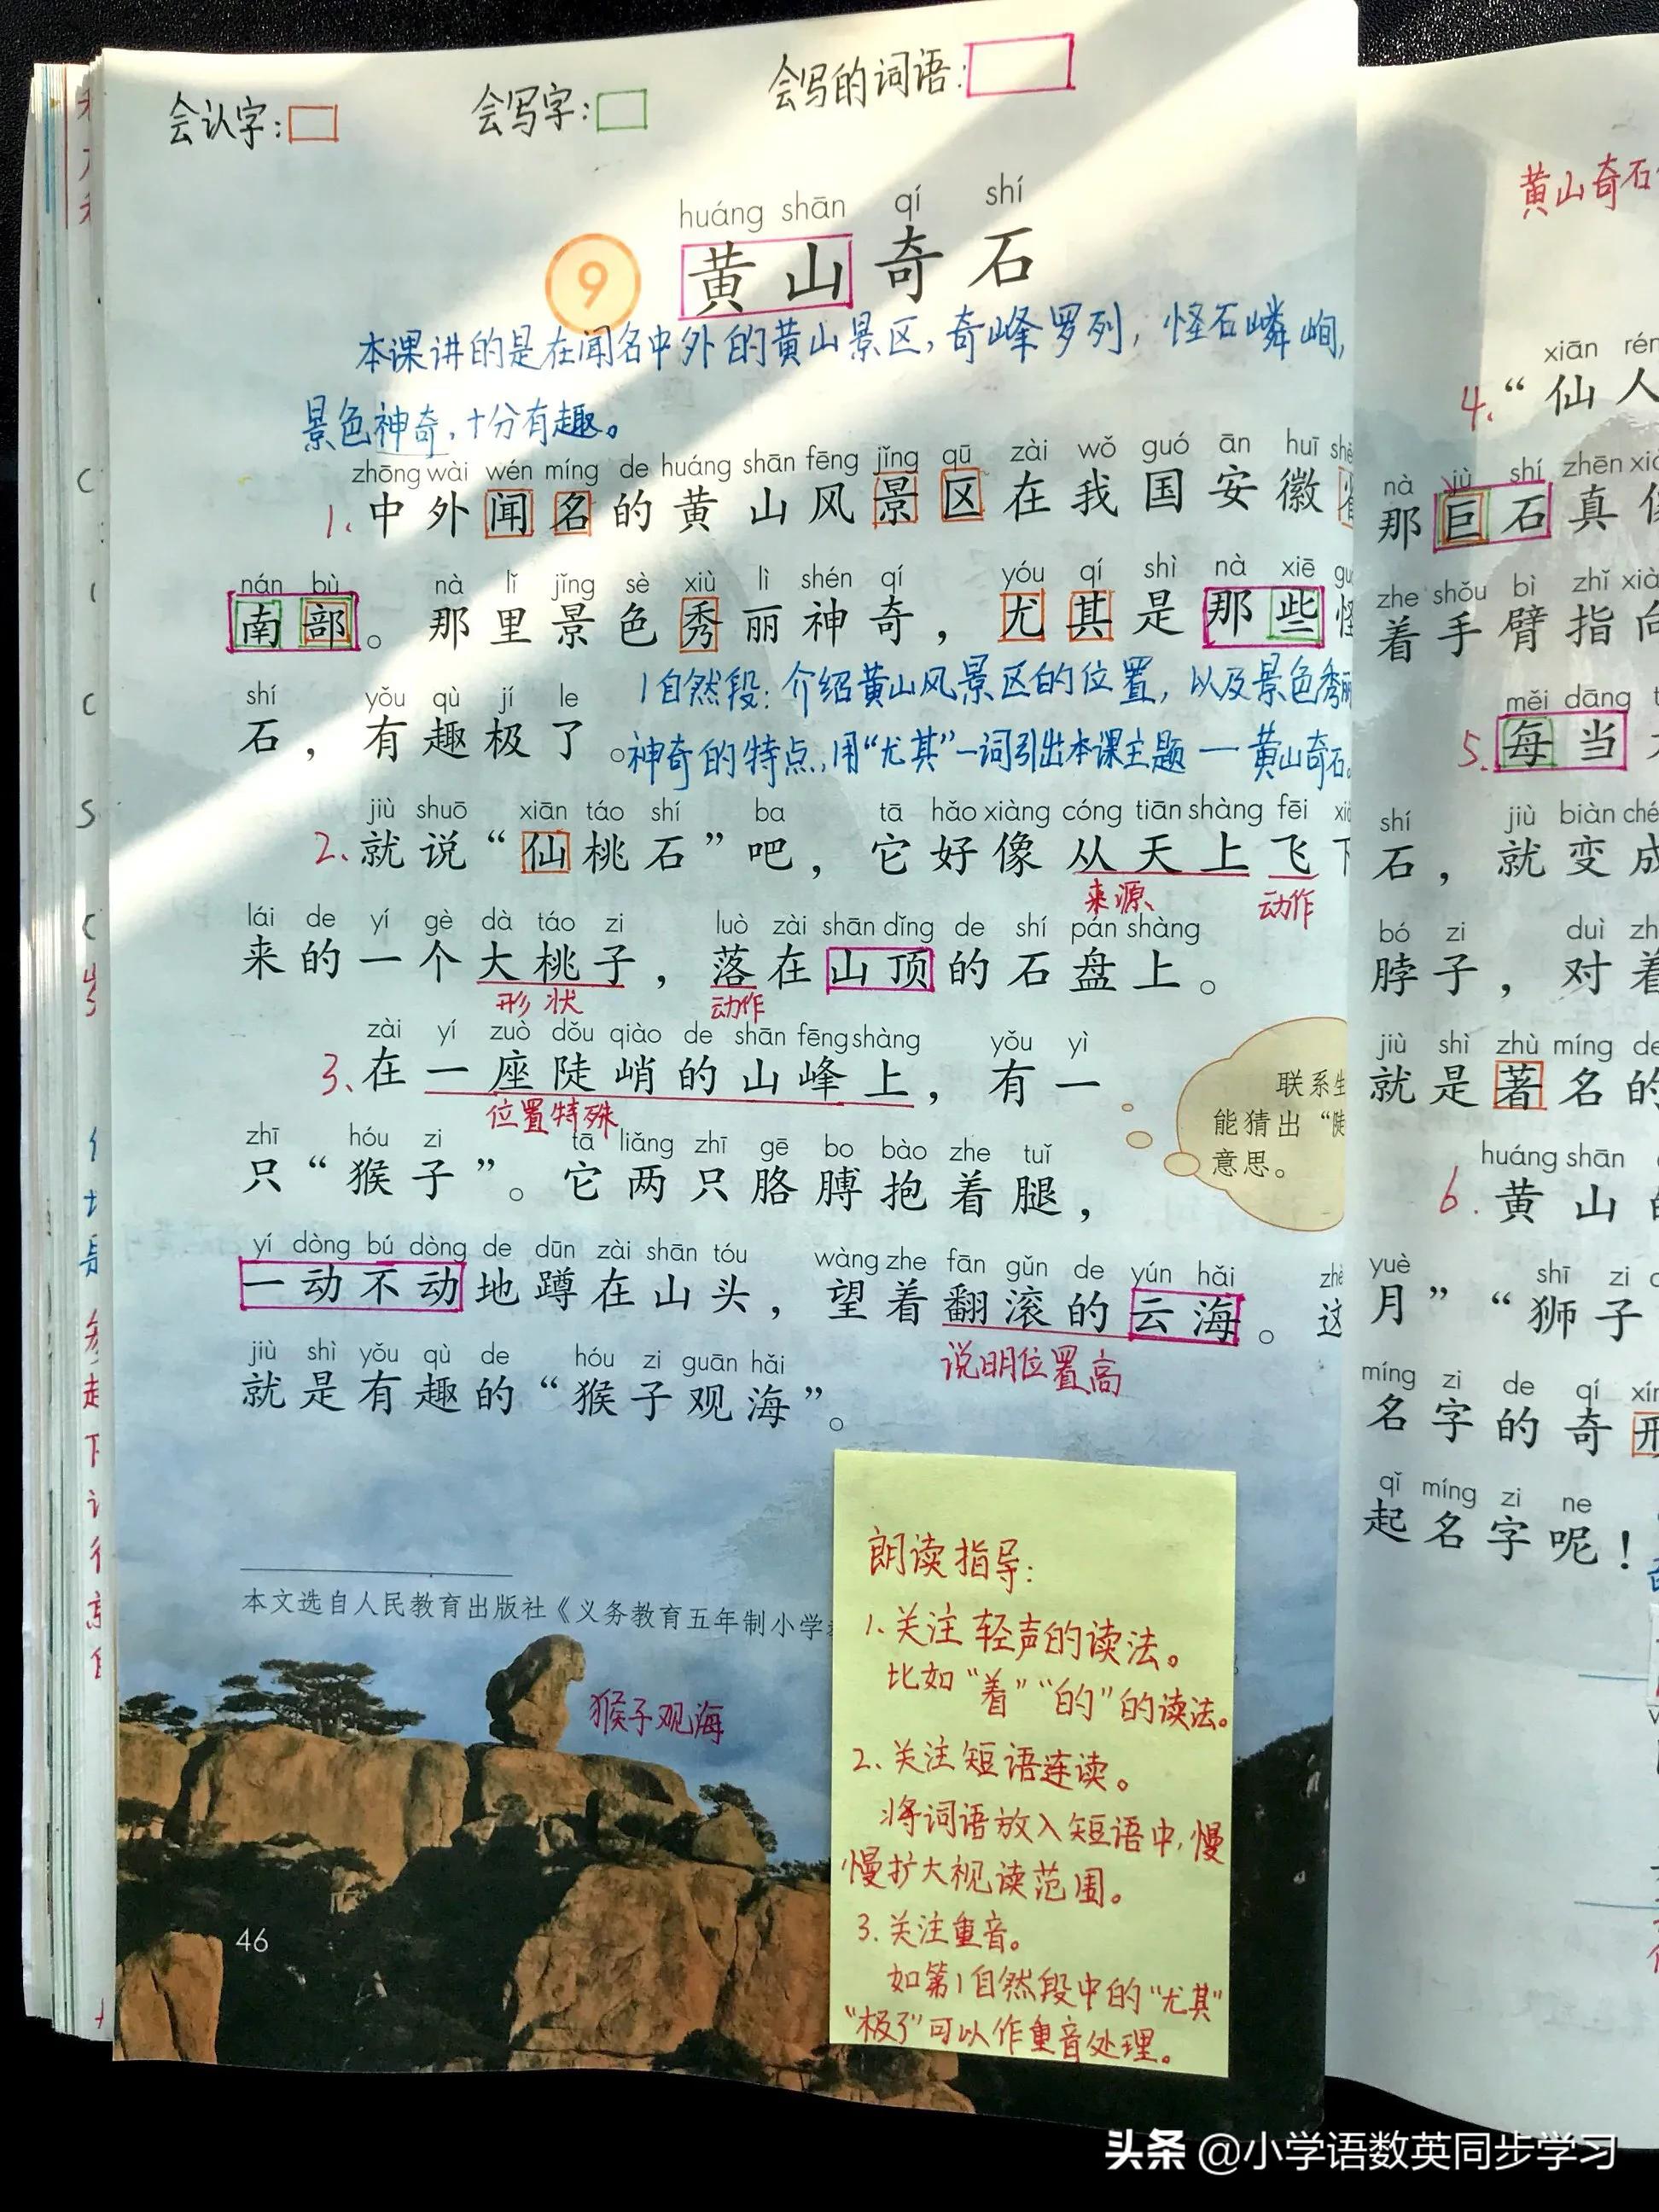 会认字: 会写字: 会写的词语:
huáng shān qí shí
9 黄山奇石
本课讲的是在闻名中外的黄山景区,奇峰罗列,怪石嶙峋,
景色神奇,十分有趣。
zhōng wài wén míng de huáng shān fēng jǐng qū zài wǒ guó ān huī
1.中外闻名的黄山风景区在我国安徽
nán bù nà lǐ jǐng sè xiù lì shén qí yóu qí shì nà xiē
南部。那里景色秀丽神奇,尤其是那些怪
1自然段:介绍黄山风景区的位置,以及景色秀丽
shí yǒu qù jí le
石,有趣极了。
神奇的特点,用“尤其”一词引出本课主题一黄山奇石。
jiù shuō xiān táo shí ba tā hǎo xiàng cóng tiān shàng fēi
2、就说“仙桃石”吧,它好像从天上飞下
来源、 动作
lái de yí gè dà táo zi luò zài shān dǐng de shí pán shàng
来的一个大桃子,落在山顶的石盘上。
形状 动作
zài yí zuò dǒu qiào de shān fēng shàng yǒu yì
3、在一座陡峭的山峰上,有一
位置特殊
zhī hóu zi tā liǎng zhī gē bo bào zhe tuǐ
只“猴子”。它两只胳膊抱着腿,
yí dòng bú dòng de dūn zài shān tóu wàng zhe fān gǔn de yún hǎi
一动不动地蹲在山头,望着翻滚的云海。这
说明位置高
jiù shì yǒu qù de hóu zi guān hǎi
就是有趣的“猴子观海”。
联系生
能猜出“陡
意思。
本文选自人民教育出版社《义务教育五年制小学
猴子观海
46
朗读指导:
1、关注轻声的读法。
比如“着”“的”的读法。
2、关注短语连读。
将词语放入短语中,慢
慢扩大视读范围。
3.关注重音。
如第1自然段中的“尤其”
“极了”可以作重音处理。
黄山奇石
xiān rén
4.“仙人
nà jù shí zhēn
那巨石真
zhe shǒu bì zhǐ
着手臂指向
měi dāng
5.每当
shí jiù biàn
石,就变成
bó zi duì
脖子,对着
jiù shì zhù míng de
就是著名的
huáng shān
6.黄山
yuè shī zi
月”“狮子
míng zi de qí
名字的奇形
qǐ míng zi ne
起名字呢!
头条 @小学语数英同步学习